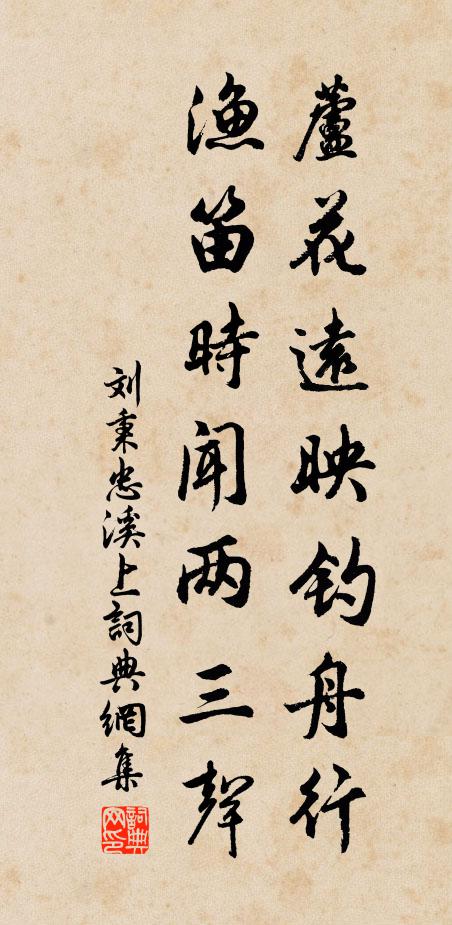 蘆花遠映釣舟行
漁笛時聞两三聲
刘秉忠溪上詞典網集
詞典网印